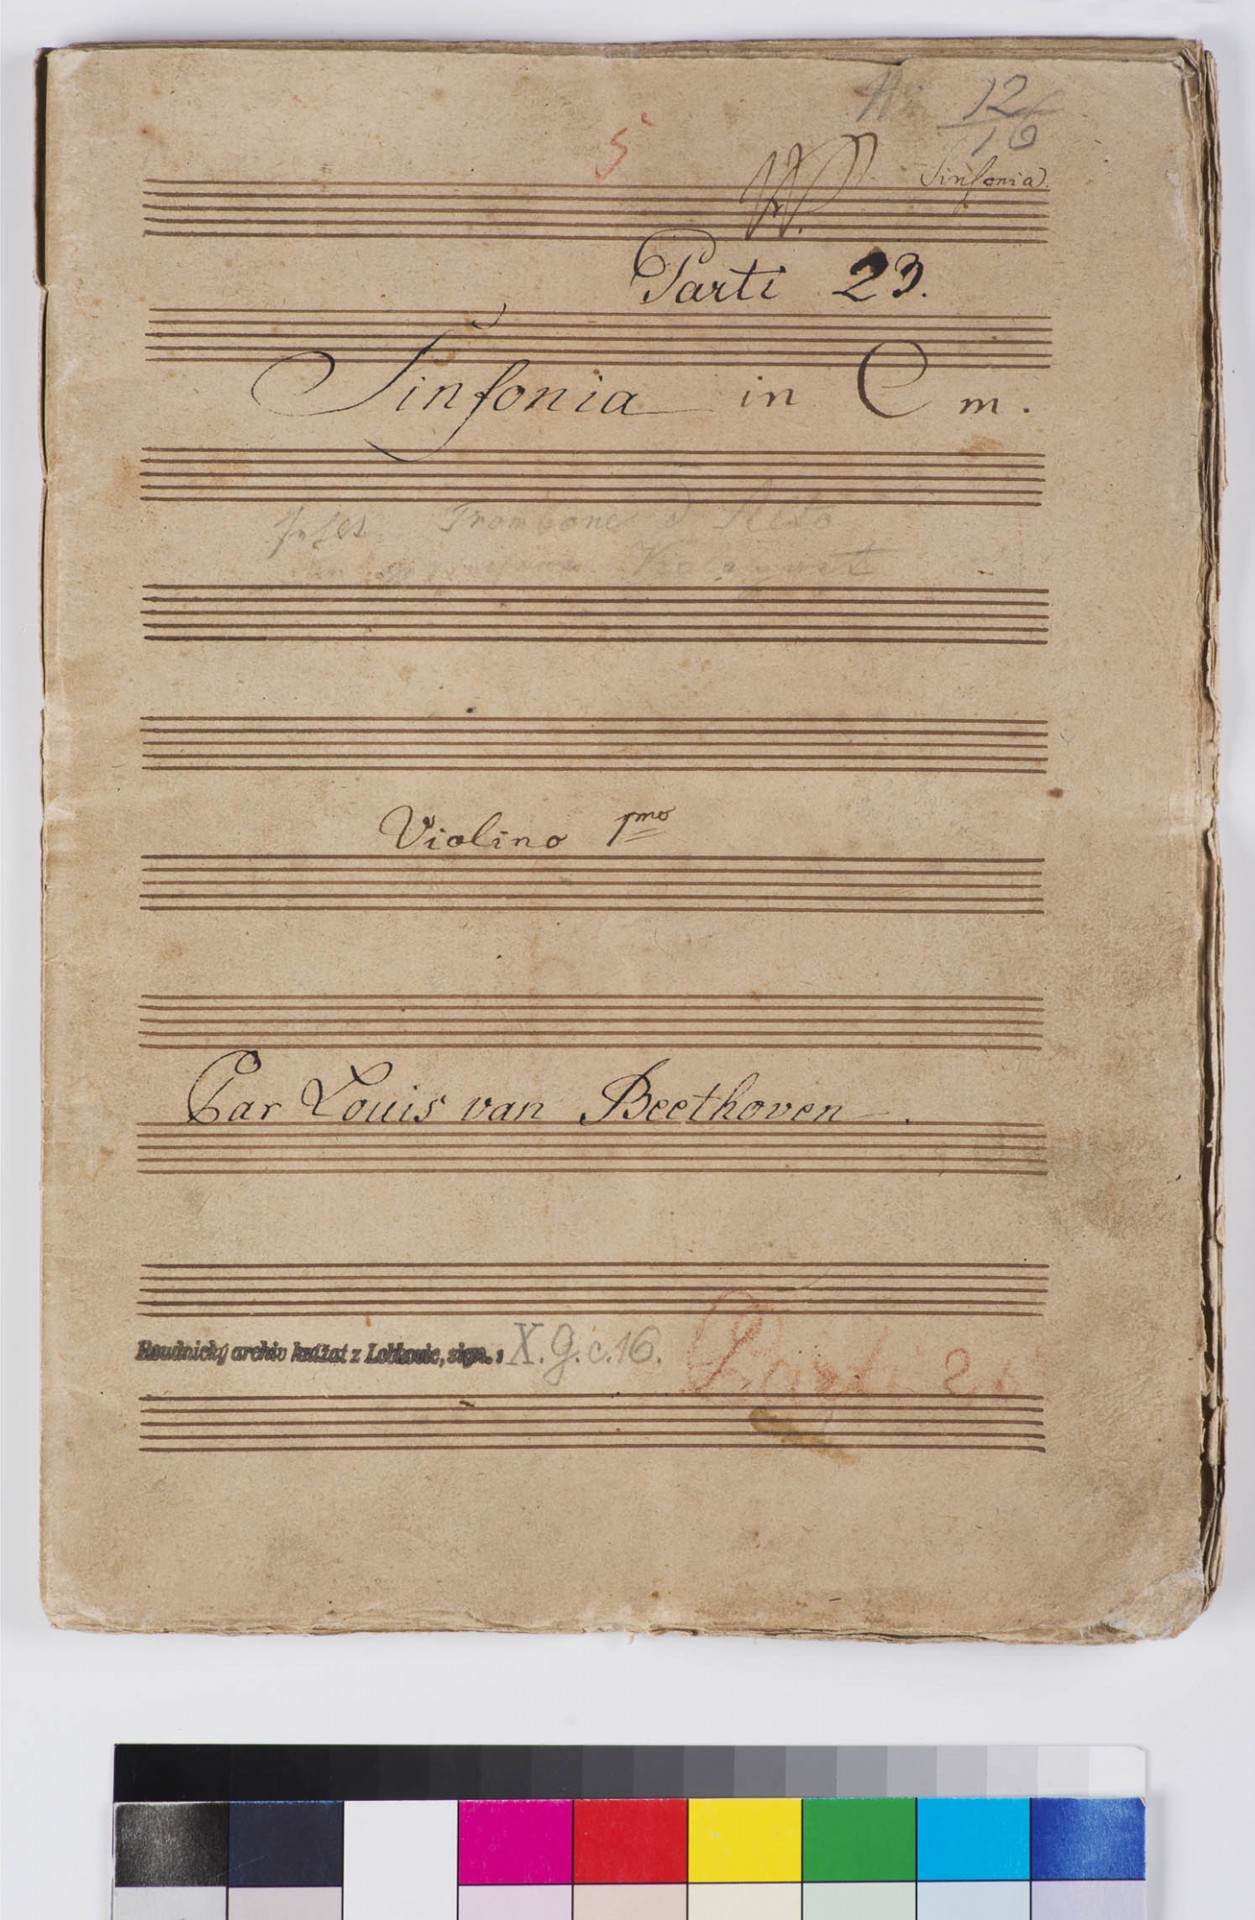 12
16
5
Sinfonia.
Parti 23.
Sinfonia in C m.
Trombone
Violino 1mo
Par Louis van Beethoven.
Roudnický archiv knížat z Lobkovic, sign.: X. G. c. 16.